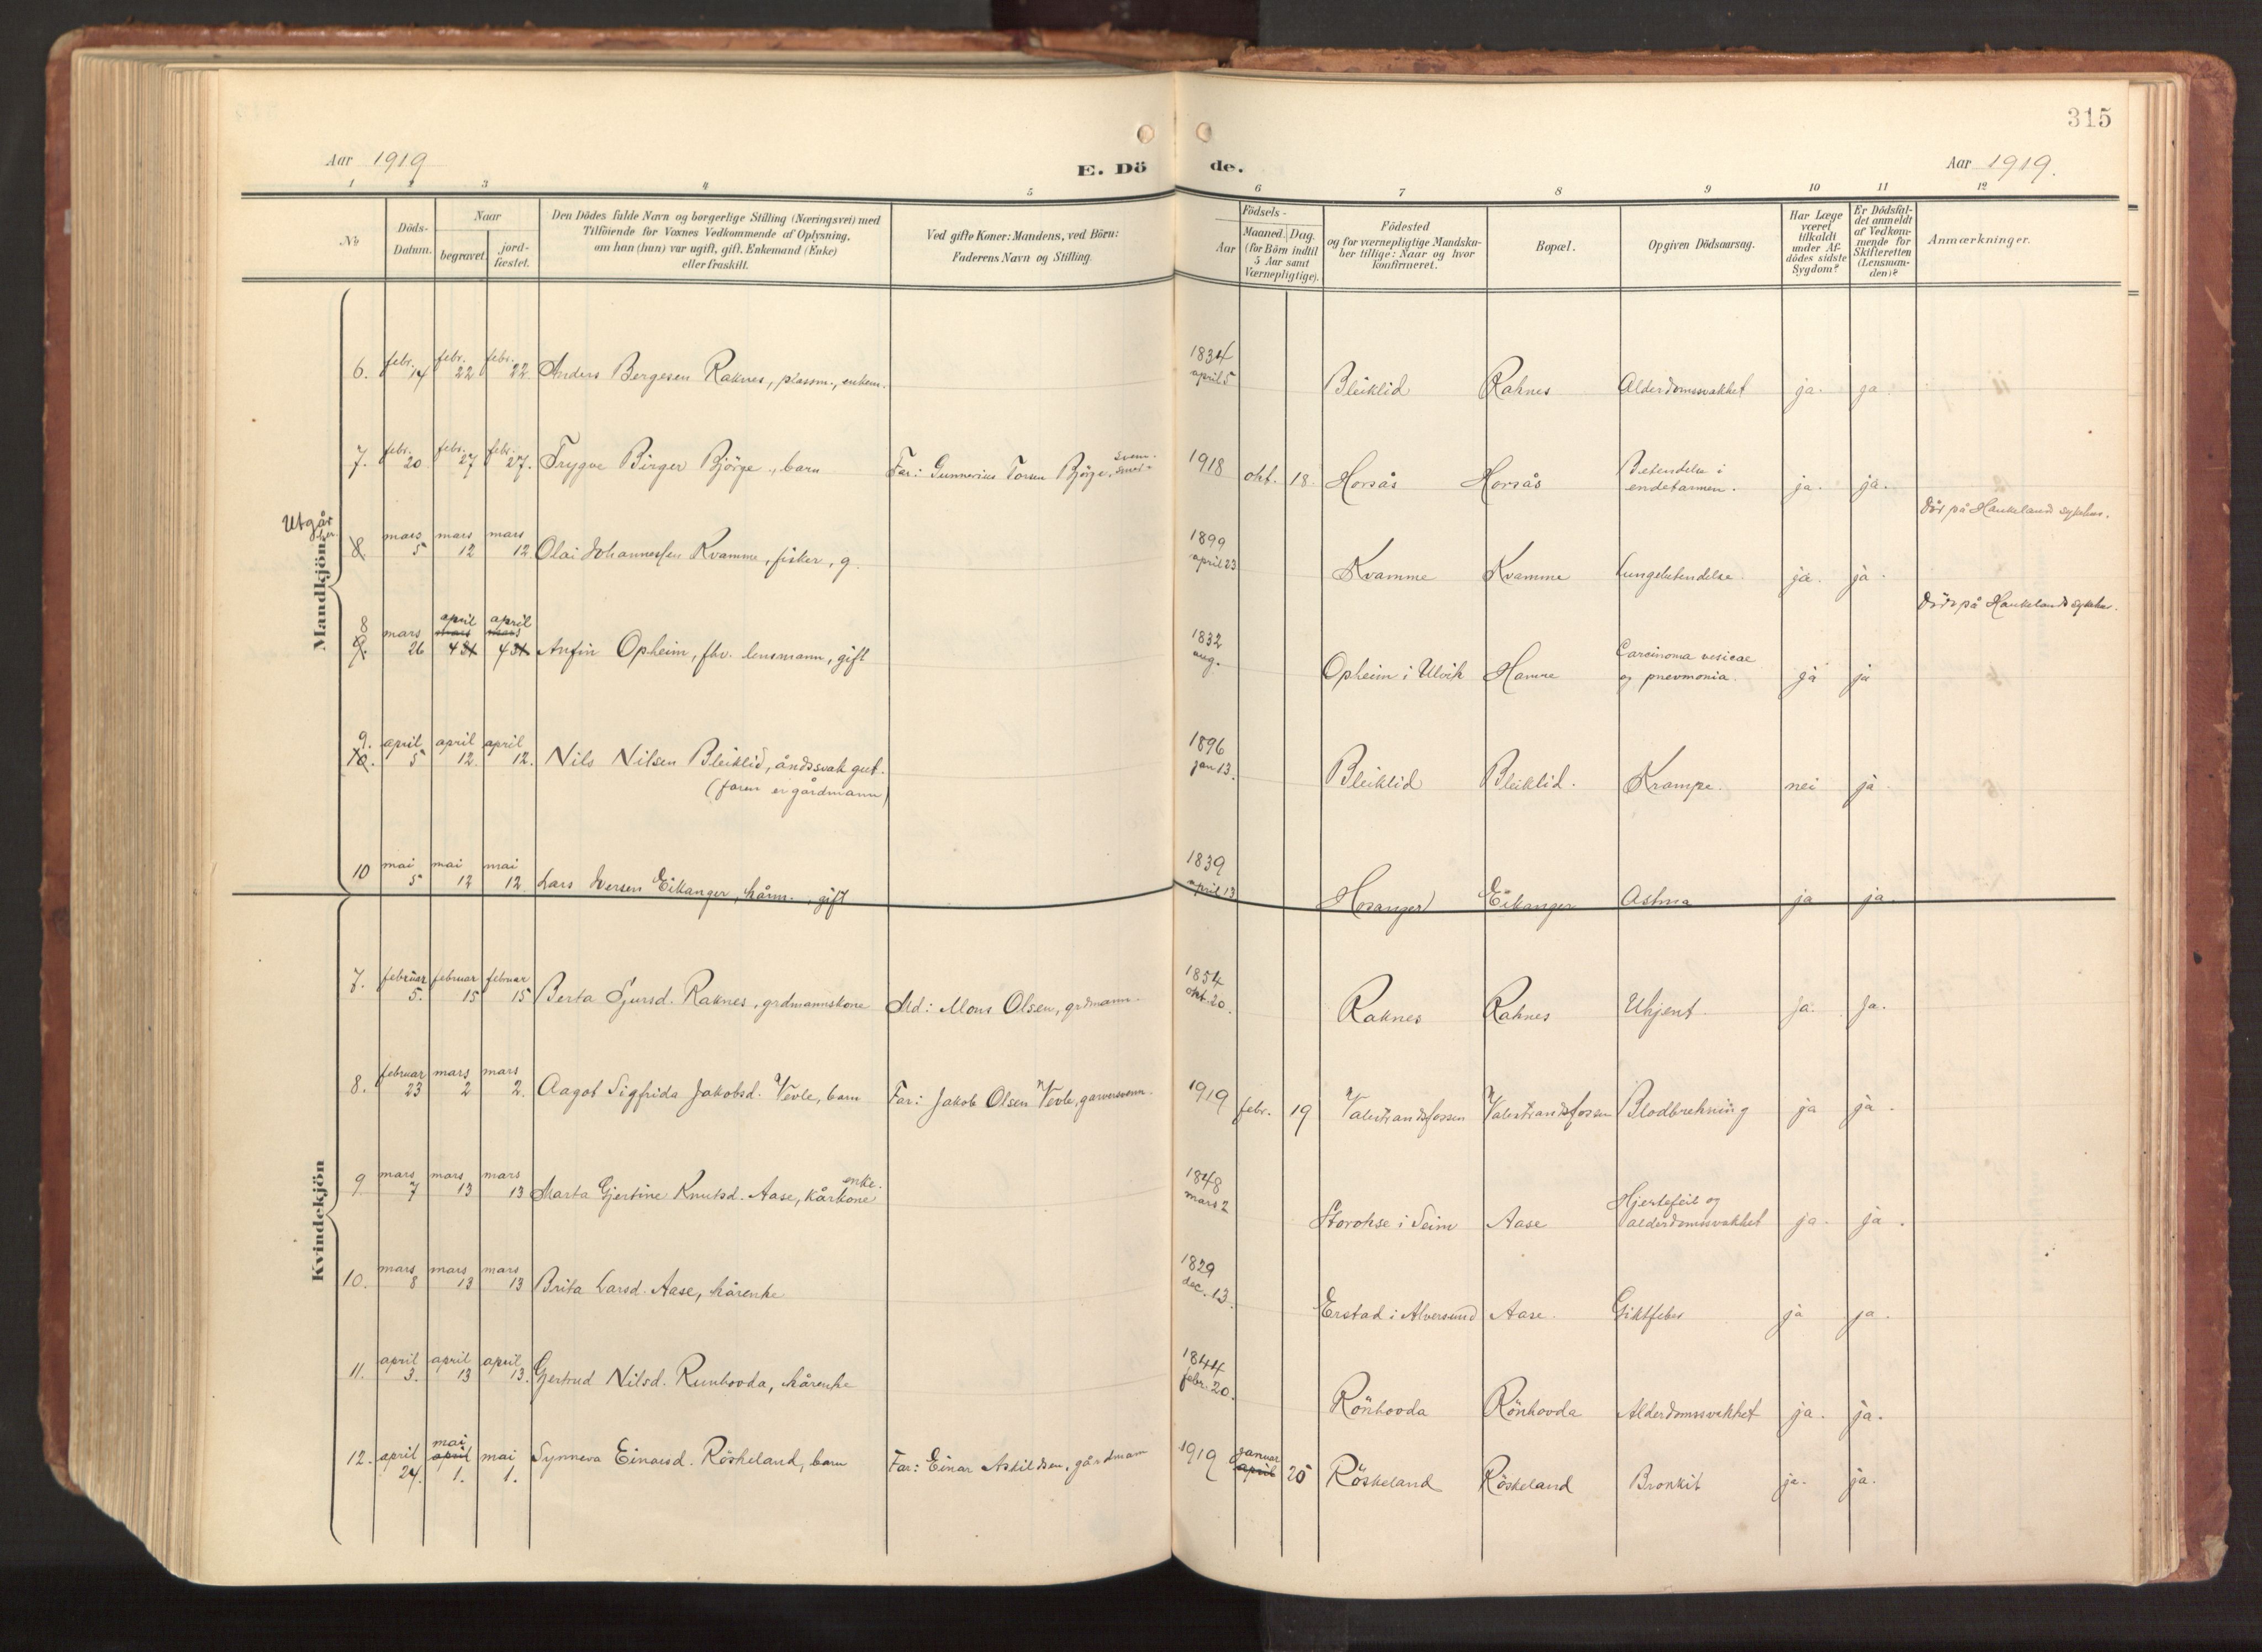 315
Aar 1919
E. Dö
de.
Aar 1919.
1 2 3 4 5 6 7 8 9 10 11 12
No
Döds-
Datum.
Naar
begravet.
jord-
fæstet.
Den Dödes fulde Navn og borgerlige Stilling (Næringsvei) med
Tilföiende for Voxnes Vedkommende af Oplysning,
om han (hun) var ugift, gift, Enkemand (Enke)
eller fraskilt.
Ved gifte Koner: Mandens, ved Börn:
Faderens Navn og Stilling.
Födsels-
Aar
Maaned. Dag.
(for Börn indtil
5 Aar samt
Værnepligtige).
Födested
og for værnepligtige Mandska-
ber tillige: Naar og hvor
konfirmeret.
Bopæl.
Opgiven Dödsaarsag.
Har Læge
været
tilkaldt
under Af-
dödes sidste
Sygdom?
Er Dödsfal-
det anmeldt
af Vedkom-
mende for
Skifteretten
(Lensman-
den)?
Anmærkninger.
Mandkjön.
6. febr. 14 febr. 22 febr. 22. Anders Bergesen Raknes, plassm., enkem. 1834 april 5 Bleiklid Raknes Alderdomssvakhet ja. ja
7. febr. 20 febr. 27 febr. 27. Trygve Birger Björge, barn Far: Gunnerius Torsen Björge, 1918 okt. 18 Horsås Horsås Betendelse i
endetarmen. ja. ja.
Utgår
her.
8 mars 5 mars 12 mars 12 Olai Johannessen Kvamme, fisker, g. 1899 april 23 Kvamme Kvamme Lungebetendelse. ja. ja. Dör på Haukeland sykehus.
8
9. mars 26 april mars 4 31 april mars 4 31 Anfin Opheim, fhv. lensmann, gift 1832 aug. Opheim i Ulvik Hamre Carcinoma vesicae
og pnevmonia. ja ja Död på Haukelands sykehus.
9.
10. april 5 april 12. april 12. Nils Nilsen Bleiklid, åndssvak gut.
(faren er gårdmann) 1896 jan 13. Bleiklid Bleiklid. Krampe. nei ja.
10 mai 5 mai 12 mai 12 Lars Iversen Eikanger, kårm., gift 1839 april 13 Hosanger Eikanger Astma ja ja.
Kvindekjön
7. februar 5. februar 15 februar 15 Berta Sjursd. Raknes, grdmannskone Md: Mons Olsen, grdmann. 1854 okt. 20. Raknes Raknes Ukjent. Ja. Ja.
8. februar 23 mars 2 mars 2. Aagot Sigfrida Jakobsd. Vevle, barn Far: Jakob Olsen Vevle, garversvenn. 1919 febr. 19 Valestrandsfossen Valestrandsfossen Blodbrekning ja ja.
9 mars 7 mars 13 mars 13 Marta Gjertine Knutsd. Aase, kårkone enke. 1848 mars 2 Storokse i Seim Aase Hjertefeil og
alderdomssvakhet ja. ja.
10. mars 8 mars 13 mars 13 Brita Larsd. Aase, kårenke 1829 dec. 13. Erstad i Alversund Aase. Giktfeber ja ja.
11. april 3. april 13 april 13. Gjertrud Nilsd. Runhovda, kårenke 1844 febr. 20. Rönhovda Rönhovda Alderdomssvakhet ja. ja.
12. april 24. mai april 1. mai 1. Synneva Einarsd. Röskeland, barn Far: Einar Askildsen, gårdmann 1919 januar april 25 Röskeland Röskeland Bronkit ja. ja.